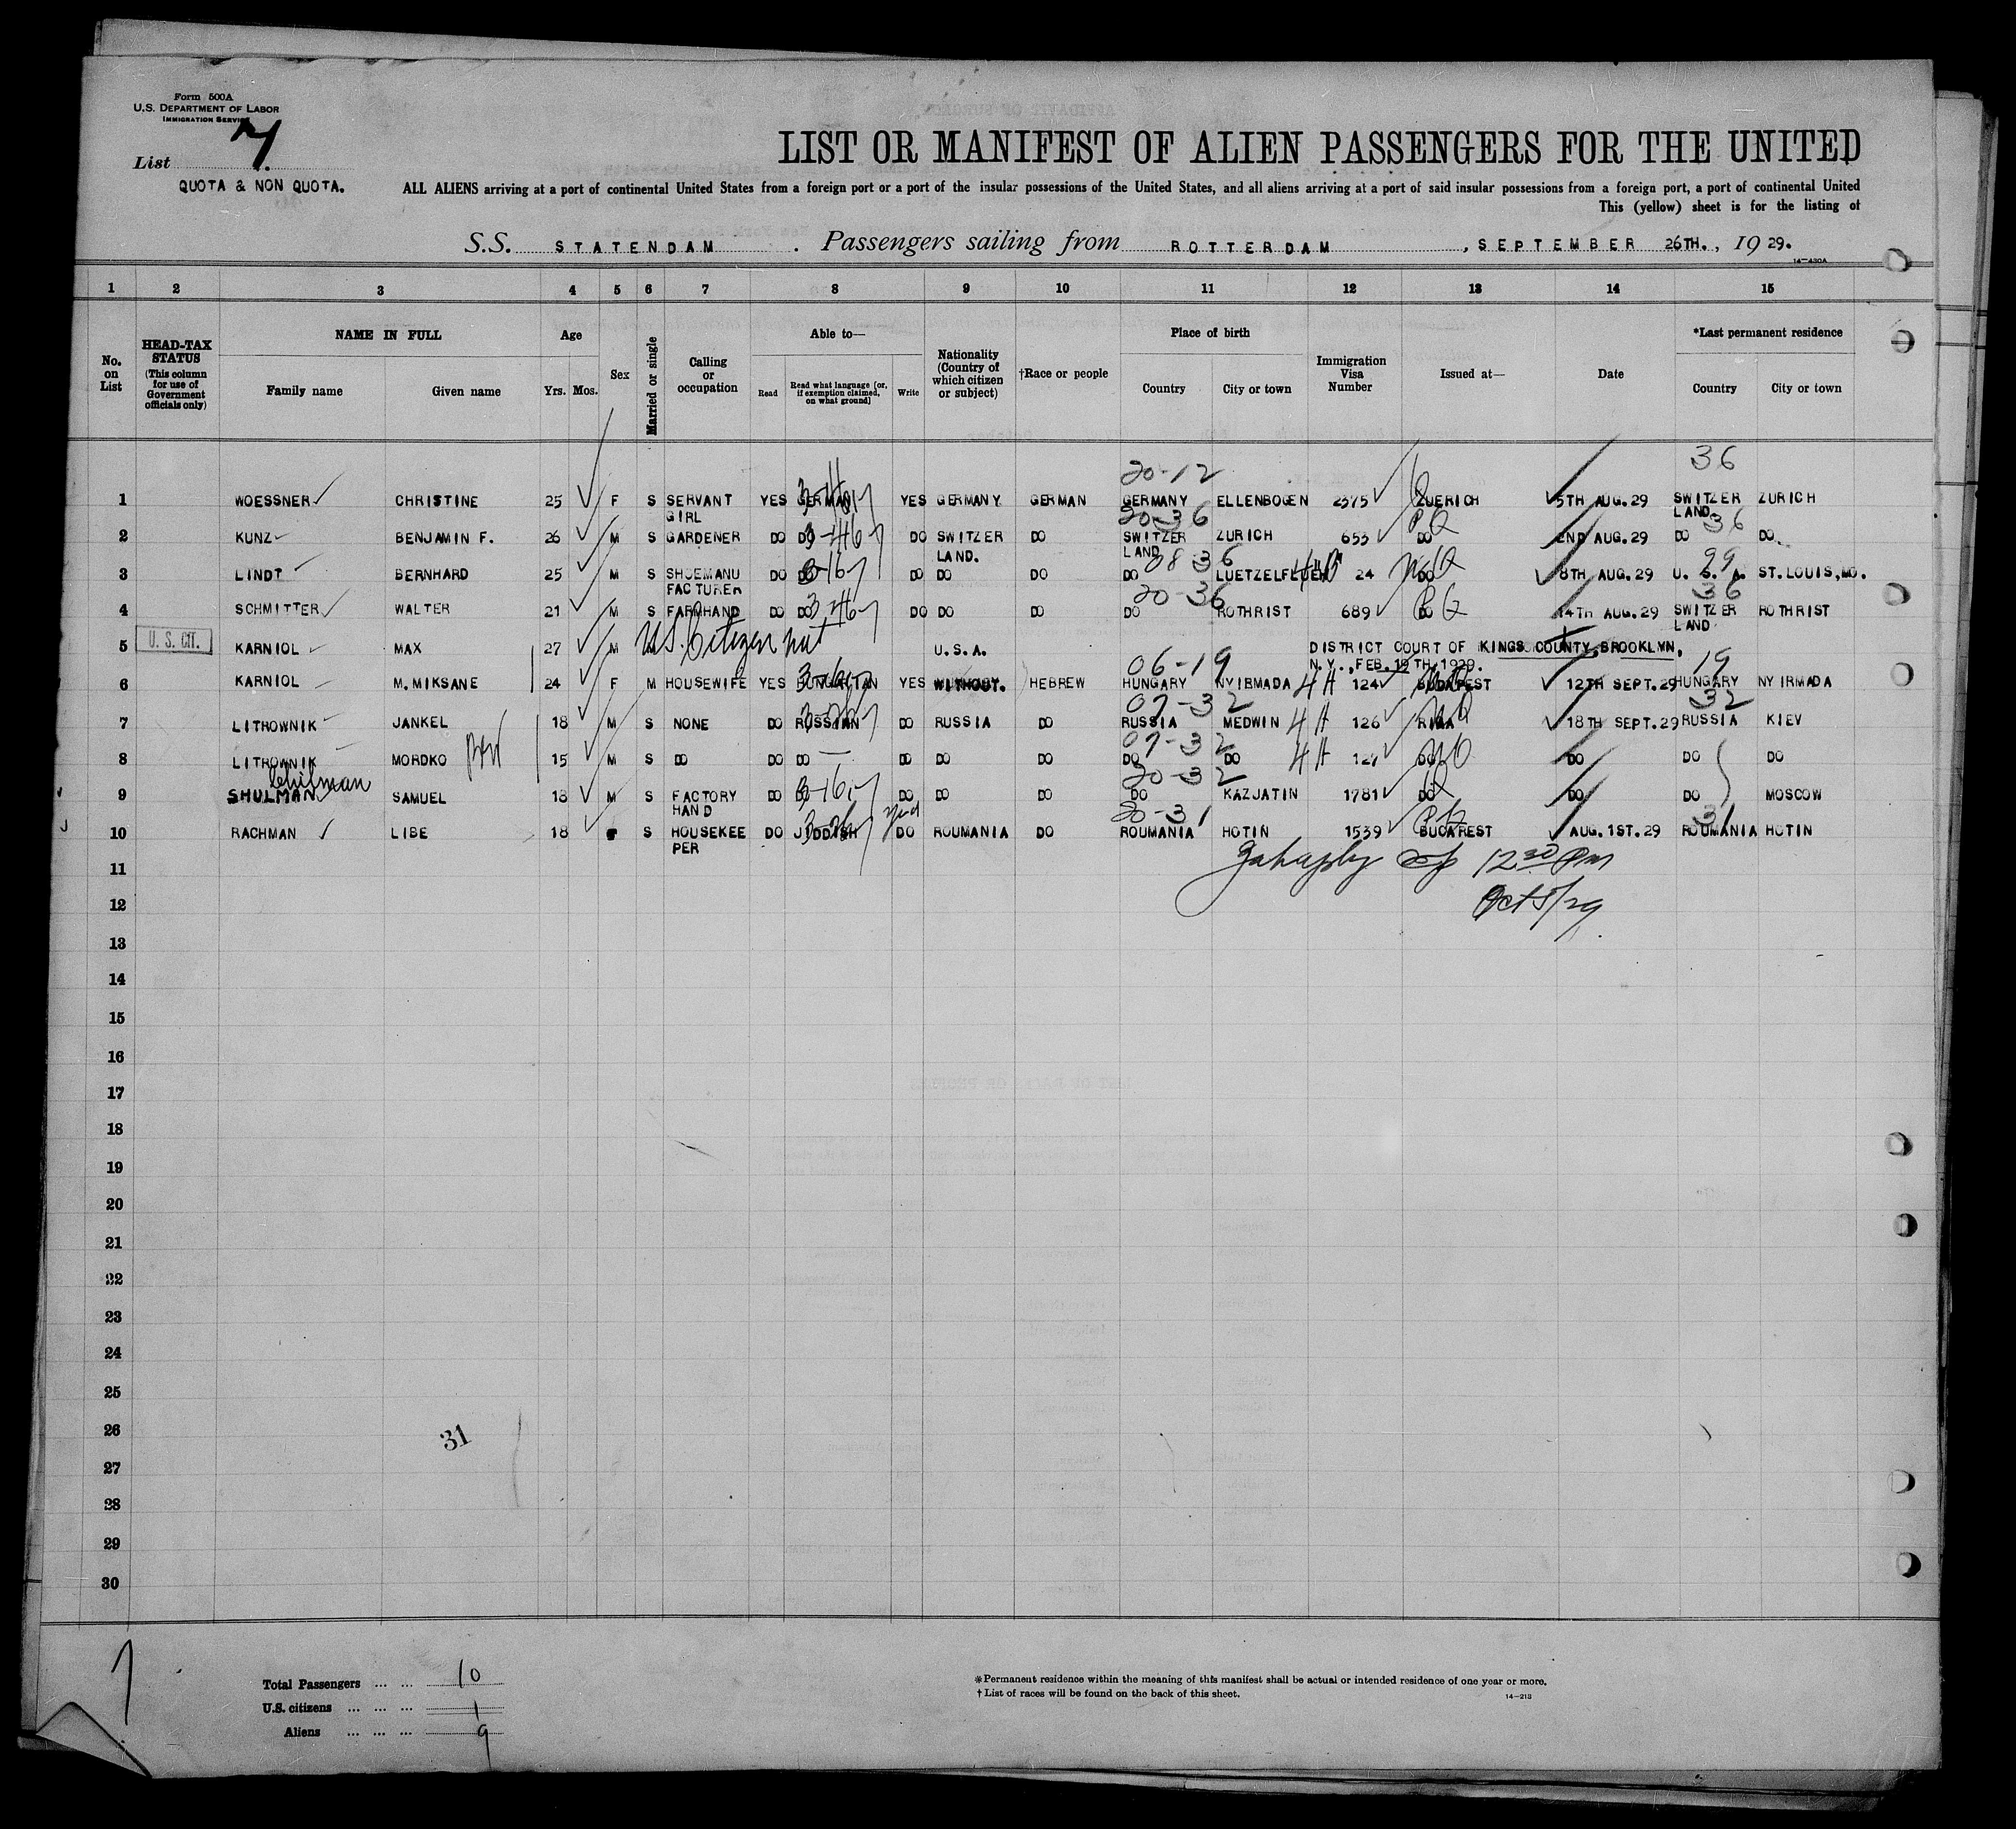 Form 500A
U.S. DEPARTMENT OF LABOR
IMMIGRATION SERVICE
List 7
QUOTA & NON QUOTA.
LIST OR MANIFEST OF ALIEN PASSENGERS FOR THE UNITED
ALL ALIENS arriving at a port of continental United States from a foreign port or a port of the insular possessions of the United States, and all aliens arriving at a port of said insular possessions from a foreign port, a port of continental United
This (yellow) sheet is for the listing of
S.S. STATENDAM. Passengers sailing from ROTTERDAM, SEPTEMBER 26TH., 1929.
14-430A
1 2 3 4 5 6 7 8 9 10 11 12 13 14 15
No. on List
HEAD-TAX STATUS (This column for use of Government officials only)
NAME IN FULL
Family name Given name
Age
Yrs. Mos.
Sex
Married or single
Calling or occupation
Able to—
Read
Read what language (or, if exemption claimed, on what ground)
Write
Nationality (Country of which citizen or subject)
†Race or people
Place of birth
Country City or town
Immigration Visa Number
Issued at—
Date
*Last permanent residence
Country City or town
20-12 36
1 WOESSNER CHRISTINE 25 F S SERVANT GIRL YES GERMAN YES GERMANY GERMAN GERMANY ELLENBOGEN 2375 ZUERICH 5TH AUG.29 SWITZER LAND. ZURICH
20-36 36
2 KUNZ BENJAMIN F. 26 M S GARDENER DO DO DO SWITZER LAND. DO SWITZER LAND ZURICH 653 DO 2ND AUG.29 DO DO.
08-36 99
3 LINDT BERNHARD 25 M S SHOEMANU FACTURER DO DO DO DO DO DO LUETZELFLUEH 24 DO 8TH AUG.29 U. S. A. ST.LOUIS,MO.
20-36 36
4 SCHMITTER WALTER 21 M S FARMHAND DO DO DO DO DO DO ROTHRIST 689 DO 14TH AUG.29 SWITZER LAND ROTHRIST
5 U. S. CIT. KARNIOL MAX 27 M M U.S. Citizen nat U.S.A. DISTRICT COURT OF KINGS COUNTY, BROOKLYN, N.Y., FEB.19TH,1929.
06-19 19
6 KARNIOL M.MIKSANE 24 F M HOUSEWIFE YES HUNGARIAN YES WITHOUT. HEBREW HUNGARY NYIRMADA 4H 124 BUDAPEST 12TH SEPT.29 HUNGARY NYIRMADA
07-32 32
7 LITROWNIK JANKEL 18 M S NONE DO RUSSIAN DO RUSSIA DO RUSSIA MEDWIN 4H 126 RIGA 18TH SEPT.29 RUSSIA KIEV
07-32
8 LITROWNIK MORDKO 15 M S DO DO DO DO DO DO DO DO 4H 127 DO DO DO DO
20-32
9 SHULMAN SAMUEL 18 M S FACTORY HAND DO DO DO DO DO DO KAZJATIN 1781 DO DO DO MOSCOW
20-31 31
10 RACHMAN LIBE 18 S HOUSEKEE PER DO JIDDISH DO ROUMANIA DO ROUMANIA HOTIN 1539 BUCAREST AUG.1ST.29 ROUMANIA HOTIN
11 12 30 Pm
12 Oct 5/29
13
14
15
16
17
18
19
20
21
22
23
24
25
26
31
27
28
29
30
Total Passengers ... ... 10
U.S. citizens ... ... ... 1
Aliens ... ... ... 9
*Permanent residence within the meaning of this manifest shall be actual or intended residence of one year or more.
† List of races will be found on the back of this sheet. 14-213